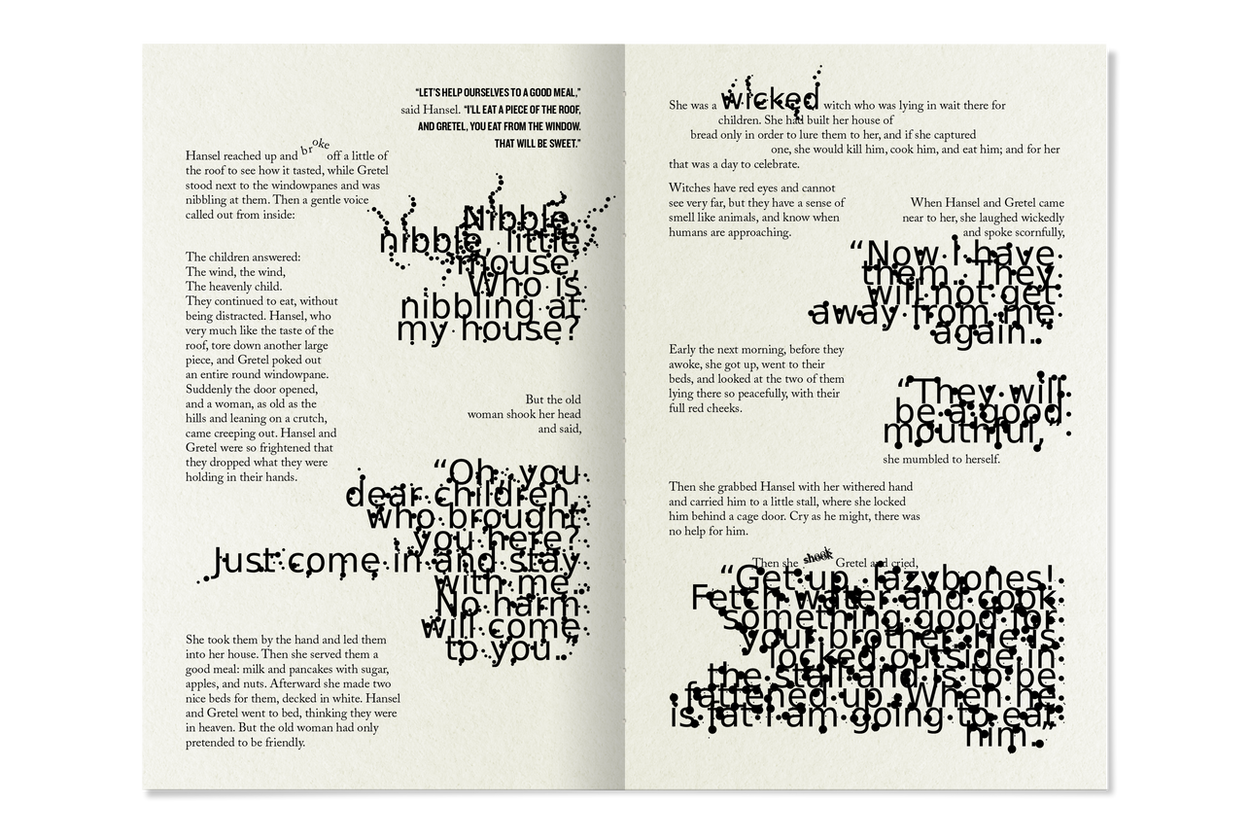 “LET’S HELP OURSELVES TO A GOOD MEAL,”
said Hansel. “I’LL EAT A PIECE OF THE ROOF,
AND GRETEL, YOU EAT FROM THE WINDOW.
THAT WILL BE SWEET.”
Hansel reached up and broke off a little of
the roof to see how it tasted, while Gretel
stood next to the windowpanes and was
nibbling at them. Then a gentle voice
called out from inside:
Nibble,
nibble, little
mouse,
Who is
nibbling at
my house?
The children answered:
The wind, the wind,
The heavenly child.
They continued to eat, without
being distracted. Hansel, who
very much like the taste of the
roof, tore down another large
piece, and Gretel poked out
an entire round windowpane.
Suddenly the door opened,
and a woman, as old as the
hills and leaning on a crutch,
came creeping out. Hansel and
Gretel were so frightened that
they dropped what they were
holding in their hands.
But the old
woman shook her head
and said,
“Oh, you
dear children,
who brought
you here?
Just come in and stay
with me.
No harm
will come
to you.”
She took them by the hand and led them
into her house. Then she served them a
good meal: milk and pancakes with sugar,
apples, and nuts. Afterward she made two
nice beds for them, decked in white. Hansel
and Gretel went to bed, thinking they were
in heaven. But the old woman had only
pretended to be friendly.
She was a wicked witch who was lying in wait there for
children. She had built her house of
bread only in order to lure them to her, and if she captured
one, she would kill him, cook him, and eat him; and for her
that was a day to celebrate.
Witches have red eyes and cannot
see very far, but they have a sense of
smell like animals, and know when
humans are approaching.
When Hansel and Gretel came
near to her, she laughed wickedly
and spoke scornfully,
“Now I have
them. They
will not get
away from me
again.”
Early the next morning, before they
awoke, she got up, went to their
beds, and looked at the two of them
lying there so peacefully, with their
full red cheeks.
“They will
be a good
mouthful,”
she mumbled to herself.
Then she grabbed Hansel with her withered hand
and carried him to a little stall, where she locked
him behind a cage door. Cry as he might, there was
no help for him.
Then she shook Gretel and cried,
“Get up, lazybones!
Fetch water and cook
something good for
your brother. He is
locked outside in
the stall and is to be
fattened up. When he
is fat I am going to eat
him.”